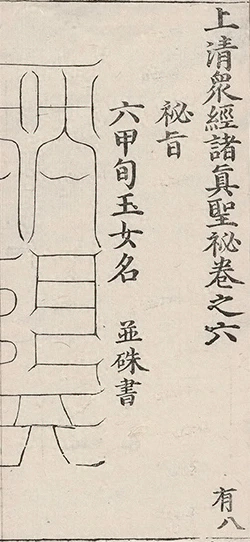 上清衆經諸眞聖祕卷之六
有八
祕旨
六甲旬玉女名
並硃書